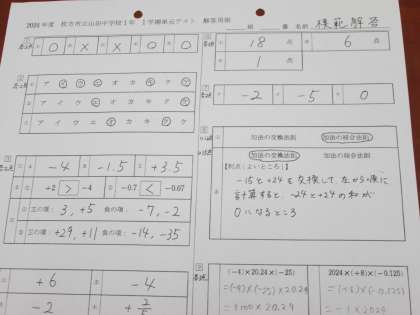 2024年度 枚方市立山田中学校1年 1学期単元テスト 解答用紙
組 番 名前 模範解答
① ○ ② × ③ × ④ ○ ⑤ ○
ア イ ウ エ オ カ キ ク ケ
ア イ ウ エ オ カ キ ク ケ
ア イ ウ エ オ カ キ ク ケ
-4 -1.5 +3.5
+2 > -4 -0.7 < -0.67
正の項: 3, +5 負の項: -7, -2
正の項: +29, +11 負の項: -14, -35
+6 -4
-2 + 2/5
18 点 6 点
1 点
-2 -5 0
加法の交換法則 加法の結合法則
加法の交換法則 加法の結合法則
【利点(よいところ)】
-15と+24を交換して、左から順に
計算すると、-24と+24の和が
0になるところ
(-4)×20.24×(-25)
=(-4)×(-25)×20.24
=100×20.24
2024×(+8)×(-0.125)
=(+8)×(-0.125)
=-1×2024